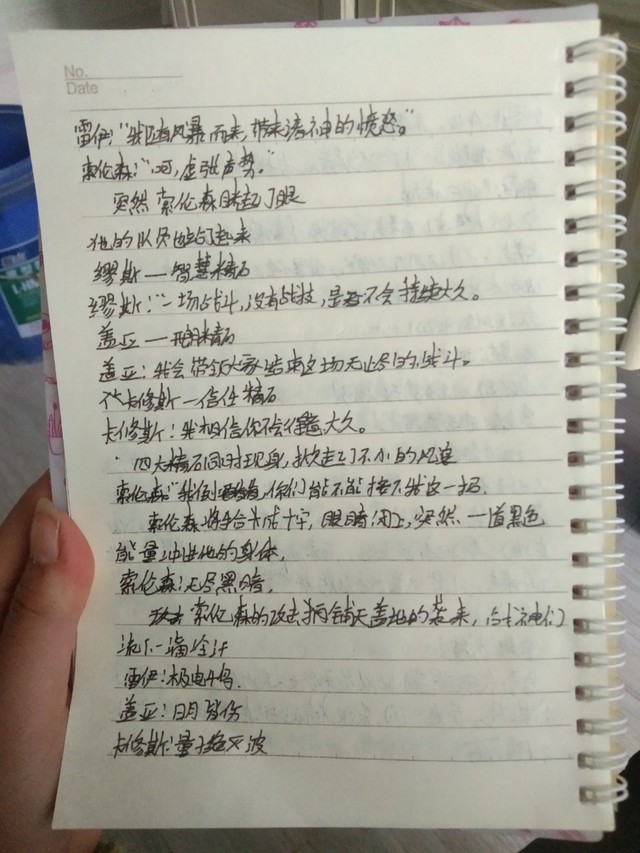 No.
Date
雷伊:"我随风暴而来,带来诸神的愤怒。"
索伦森:"呵,虚张声势。"
突然索伦森眯起了眼
他的队员也站了起来
缪斯一智慧精石
缪斯:"一场战斗,没有战技,是不会持续太久。
盖亚一 精石
盖亚:我会带领大家结束这场无止尽的战斗。
卡修斯一信任精石
卡修斯:我相信你不会得意太久。
四大精石同时现身,掀起了不小的风
索伦森:"我倒要看看,你们能不能接下我这一招.
索伦森将手合十成十字,眼睛闭上,突然一道黑色
能量冲进他的身体,
索伦森:无尽黑暗,
索伦森的攻击铺天盖地的袭来,令战神们
流下一滴冷汗
雷伊:极电千鸟
盖亚:日月皆伤
卡修斯:量子绝灭波